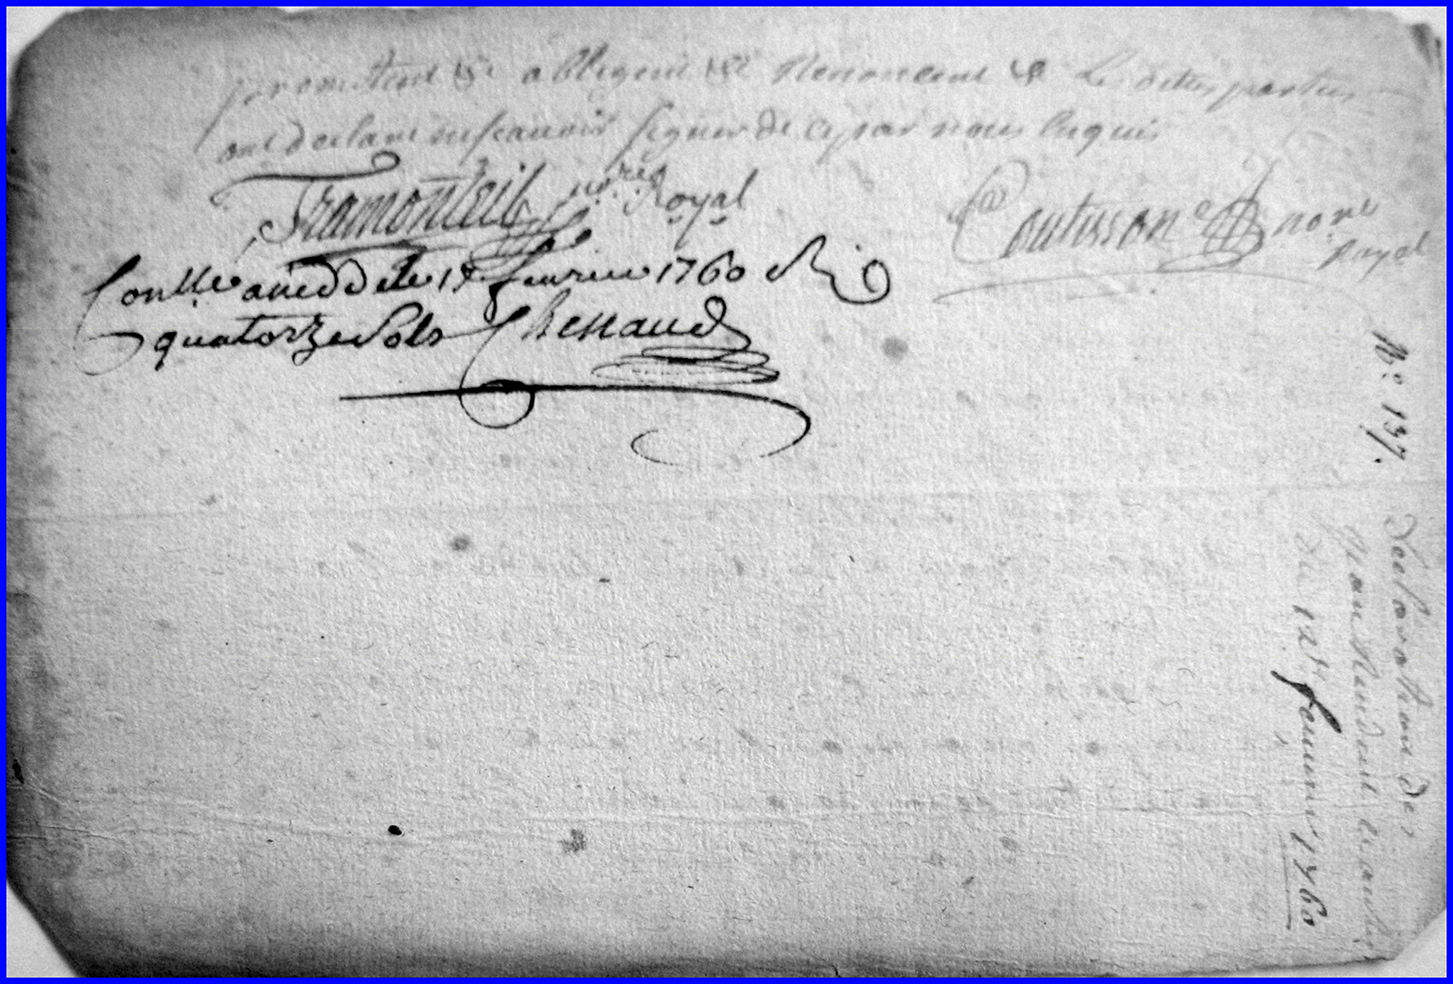 promettent &c obligent &c Renoncent &c Les dittes parties
ont declaré ne scavoir signer de ce par nous Enquis
Tramonteil no.re Royal
Coutisson no.re
Royal
Con.lle a le 1 fevrier 1760 R
quatorze sols Chessaud
N.o 137.
Declaration de
du 12.e fevrier 1760